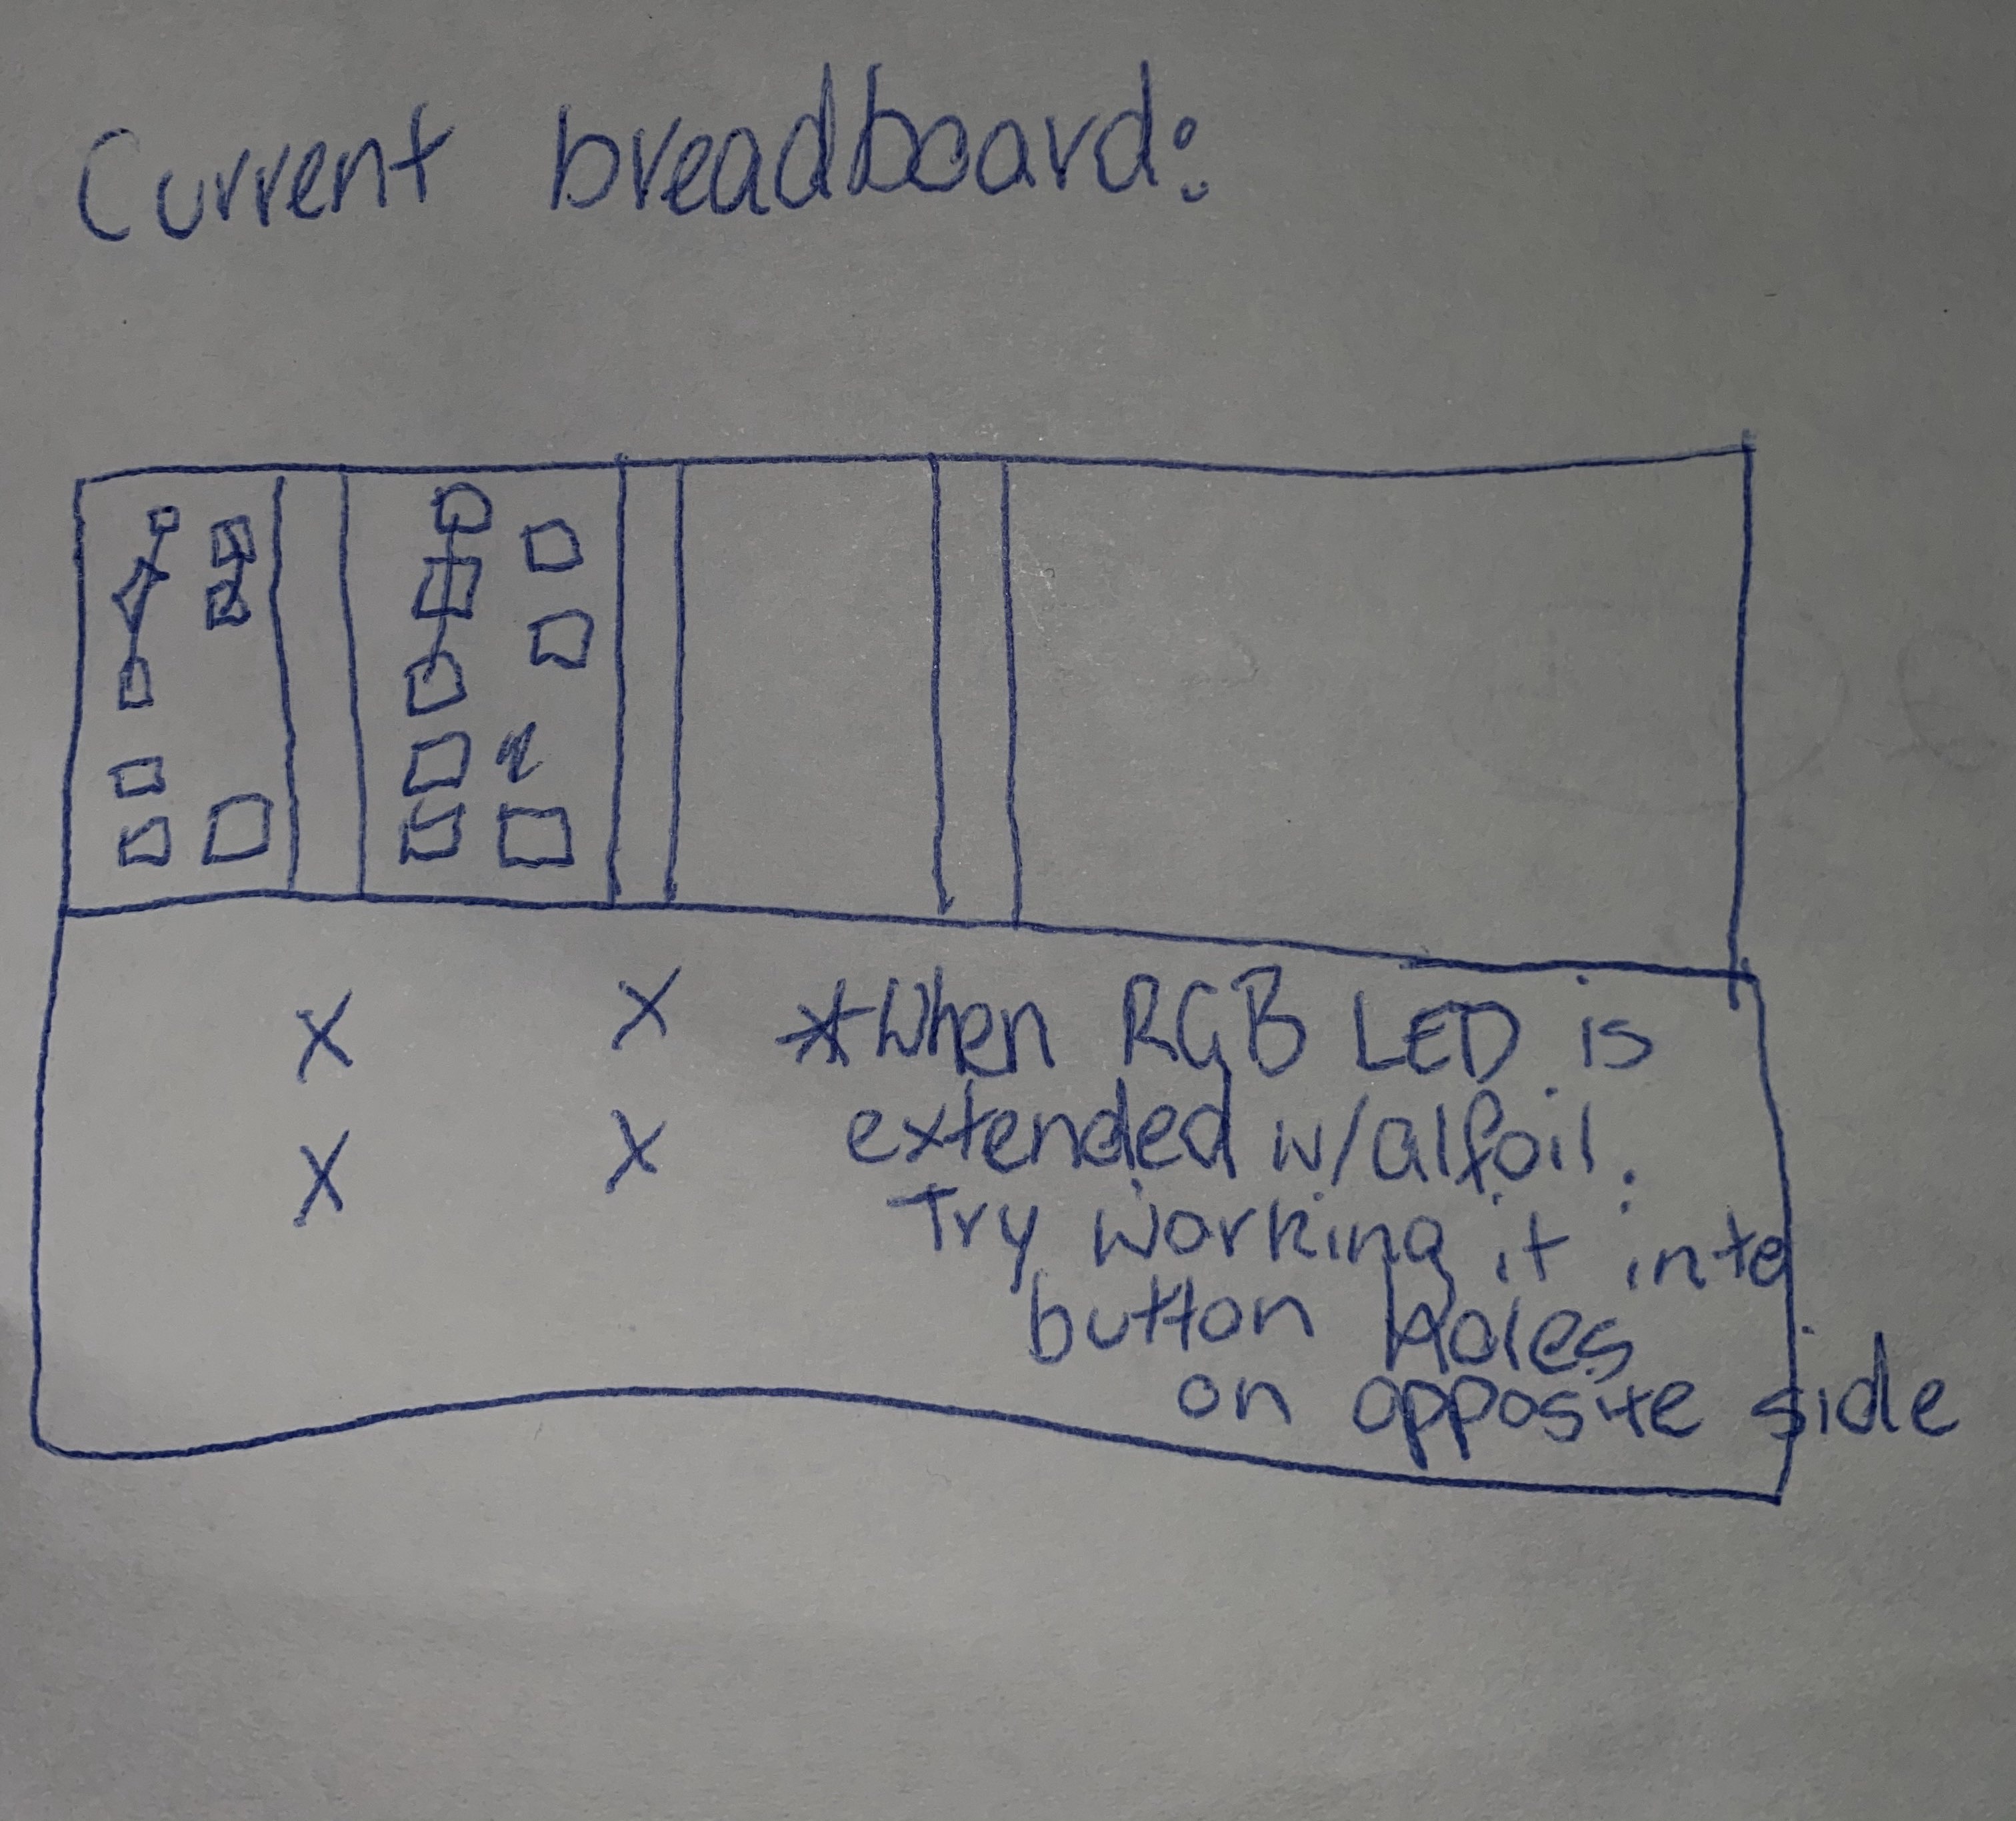 Current breadboard:
X X *When RGB LED is
X X extended w/alfoil.
Try working it into
button holes
on opposite side